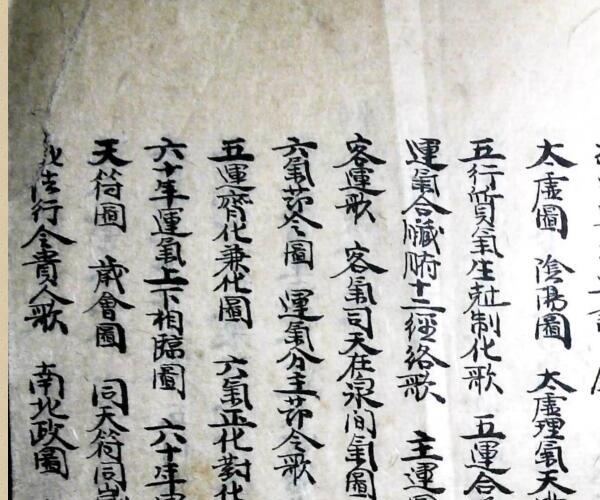 太虛圖 陰陽圖 太虛理氣天
五行質氣生尅制化歌 五運合
運氣合臟腑十二經絡歌 主運
客運歌 客氣司天在泉間氣圖
六氣節令圖 運氣分主節令歌
五運齊化兼化圖 六氣正化對化
六十年運氣上下相臨圖 六十年
天符圖 歲會圖 同天符同歲
行令貴人歌 南北政圖